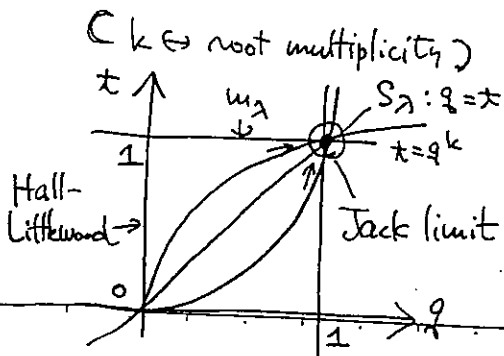 (k ↔ root multiplicity)
t
m_λ
S_λ : q = t
1
t = q^k
Hall-
Littlewood
Jack limit
0
q
1